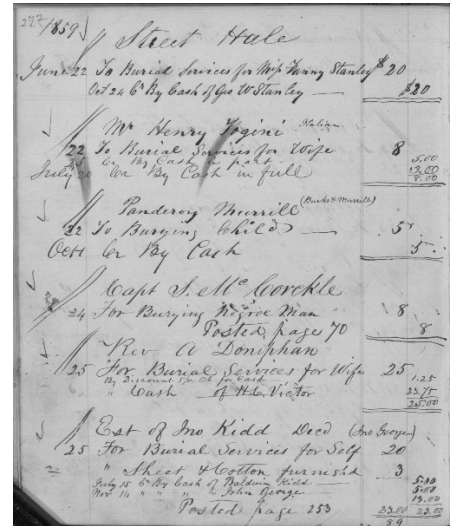 277/1859
Street Hale
June 22 To Burial Services for Miss Fanny Stanley $ 20
Oct 24 Cr By Cash of Geo W Stanley — $20
Mr Henry Togini Italian
22 To Burial Services for Wife 8
Cr By Cash in part 5.00
July 20 Cr By Cash in full 8.00
Murrill (Burks & Murrill)
22 To Burying Child — 5
Oct Cr By Cash 5
Capt J. McCorckle
24 For Burying Negroe Man 8
Posted page 70 8
Rev A Doniphan
25 For Burial Services for Wife 25
By Discount 5 pr ct for Cash 1.25
" Cash of H. C. Victor 23.75
25.00
Est of Jno Kidd Decd (Jno George)
25 For Burial Services for Self 20
" Sheet & Cotton furnished 3
July 15 Cr By Cash of Baldwin Kidd — 5.00
Nov 14 " " " " John George 5.00
13.00
Posted page 253 23.00 23.00
89